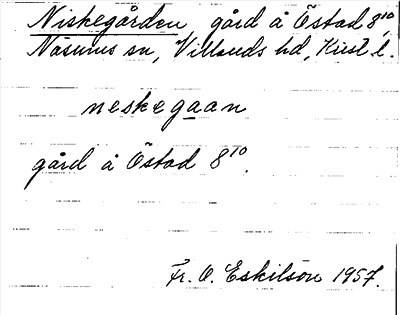 Niskegården gård å Östad 8¹⁰,
Näsums sn, Villands hd, Krist l.
neskegaan
gård å Östad 8¹⁰.
Fr. O. Eskilson 1957.